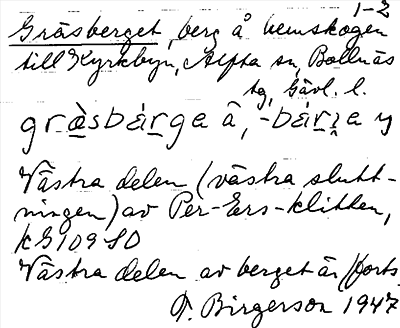 1-2
Gräsberget, berg å hemskogen
till Kyrkbyn, Alfta sn, Bollnäs
tg, Gävl. l.
gràsbárga â, -bárja y
Västra delen (västra slutt-
ningen) av Per-Ers-klitten,
kG109 SO
Västra delen av berget är (forts
T. Birgerson 1947